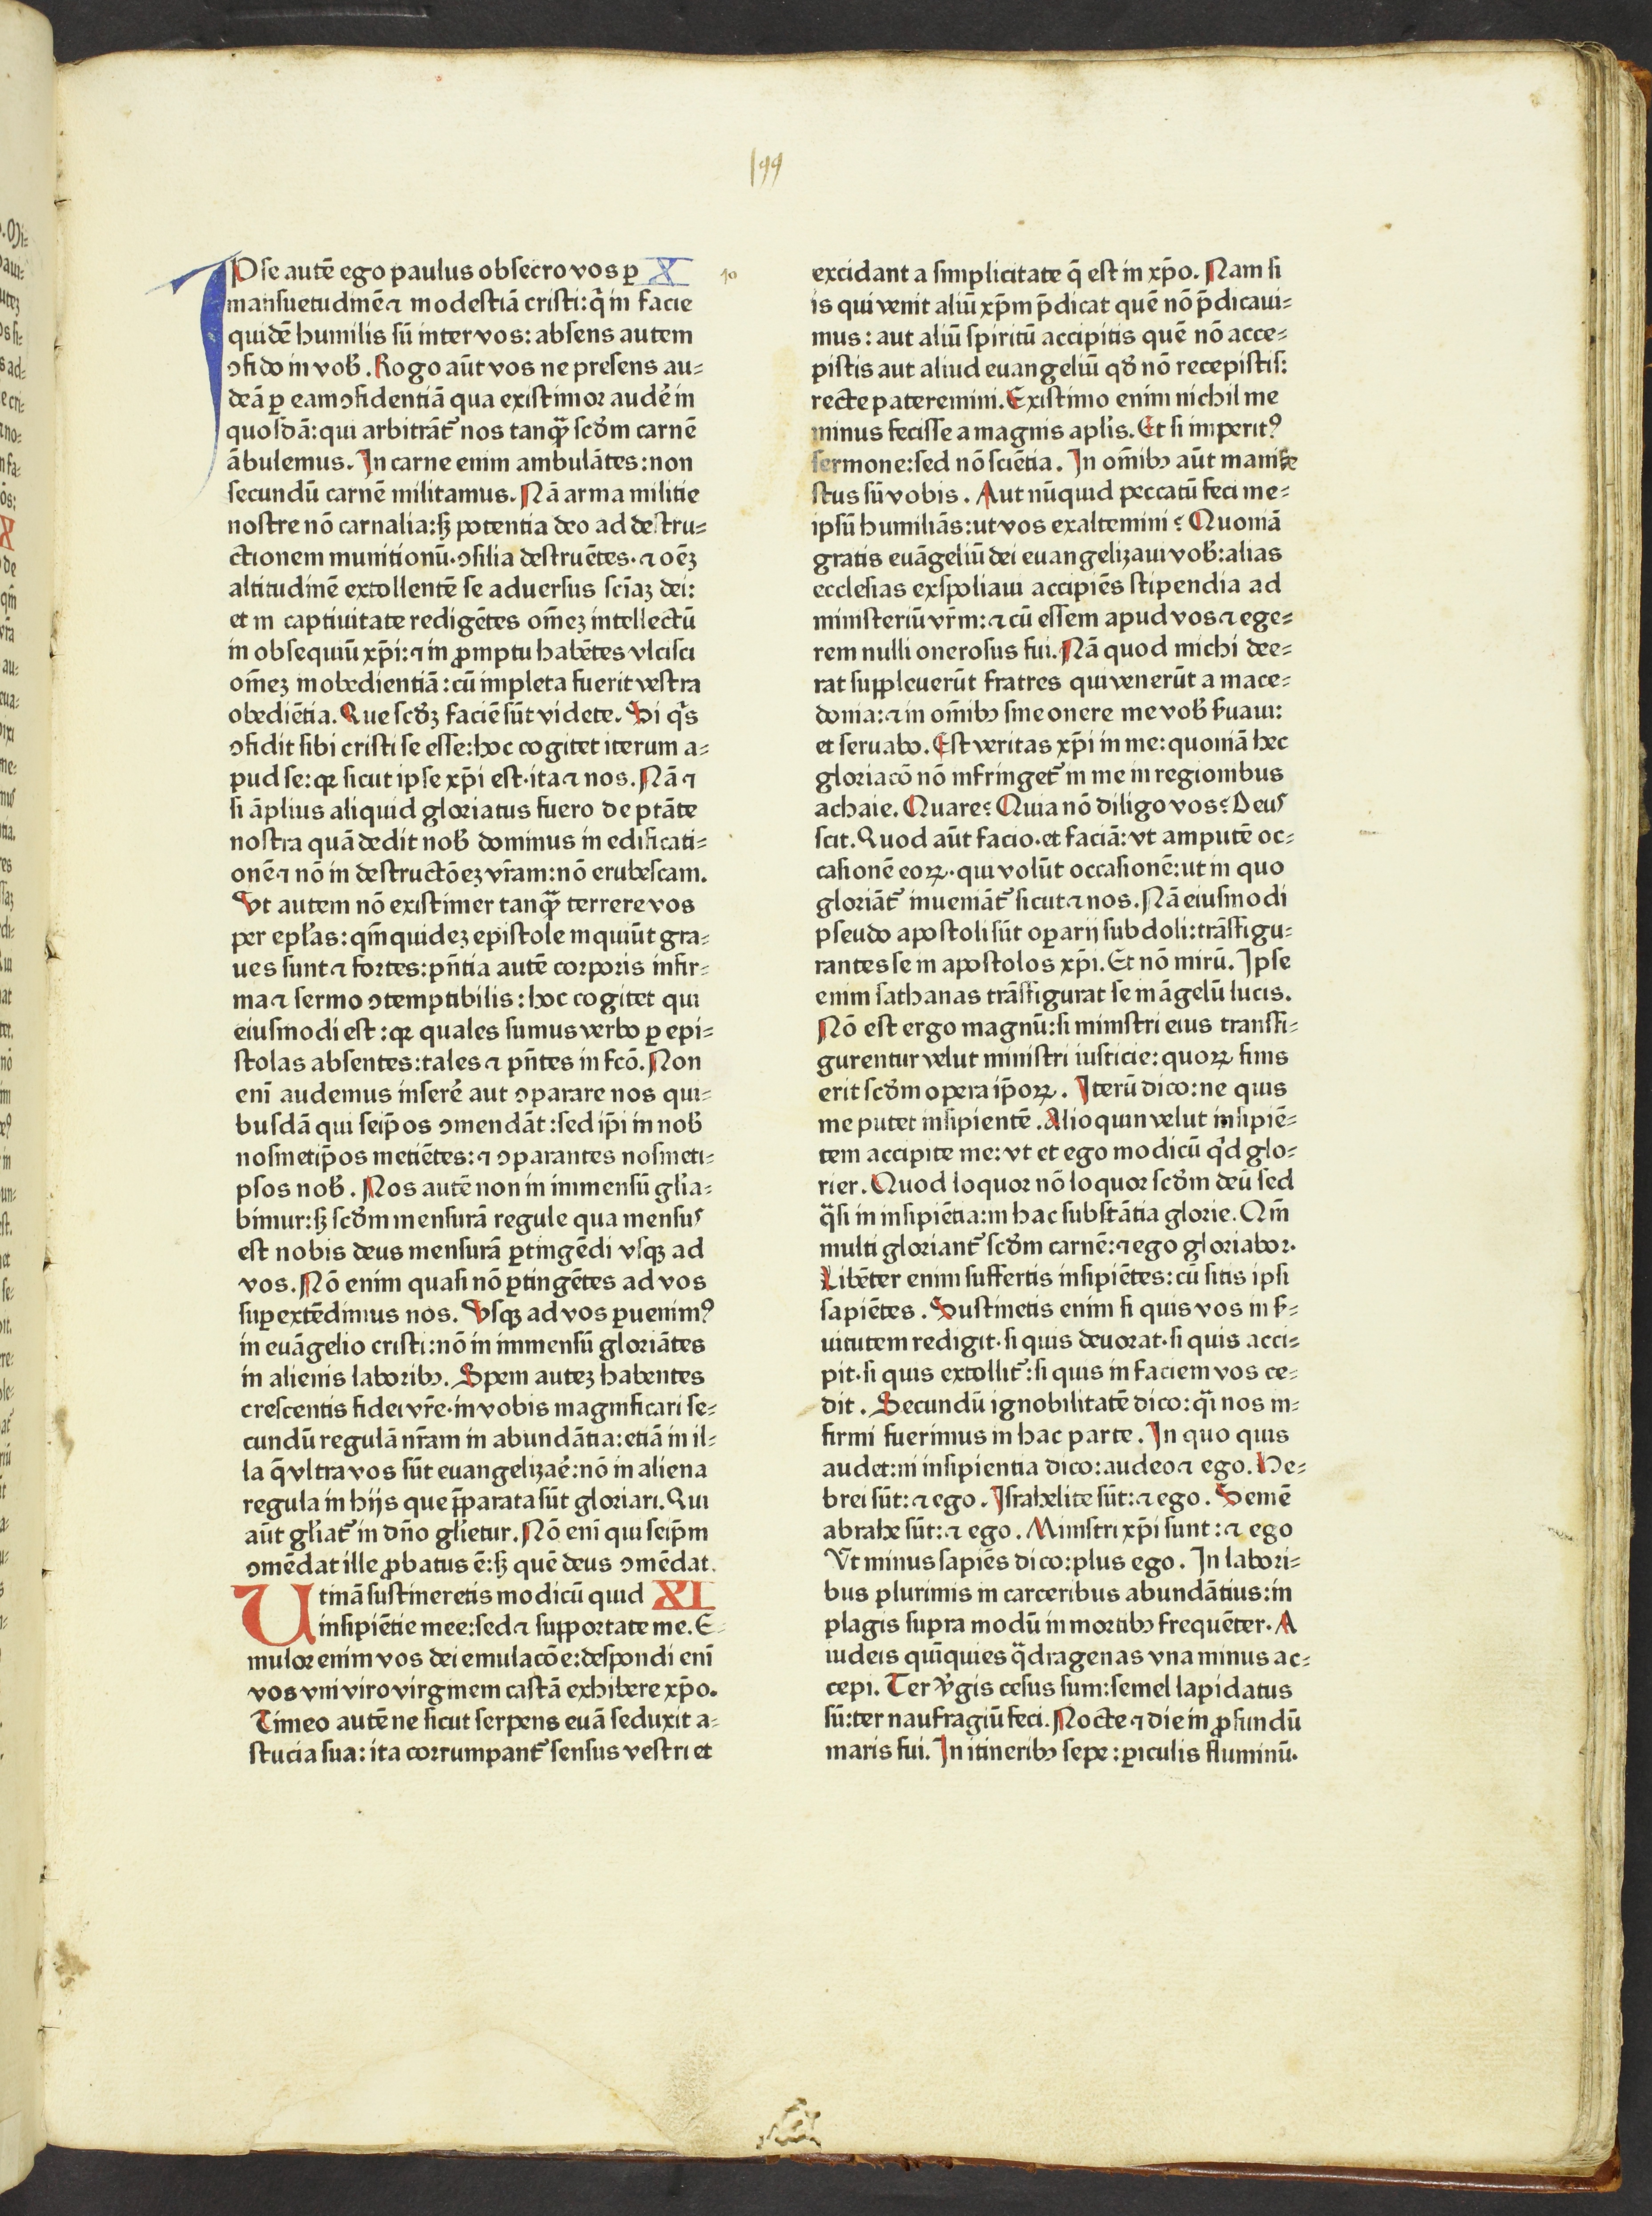 199
IPse autē ego paulus obsecro vos ꝑ X 10
mansuetudinē ⁊ modestiā cristi: q̄ in facie
quidē humilis sū inter vos: absens autem
ↄfido in vob̄. Rogo aūt vos ne presens au=
deā ꝑ eam ↄfidentiā qua existimor audēr in
quosdā: qui arbitrāt᷑ nos tanq̄ꝫ scd̄m carnē
ābulemus. In carne enim ambulātes: non
secundū carnē militamus. Nā arma militie
nostre nō carnalia: sꝫ potentia deo ad destru=
ctionem munitionū. ↄsilia destruētes. ⁊ oēꝫ
altitudinē extollentē se aduersus sciāꝫ dei:
et in captiuitate redigētes om̄eꝫ intellectū
in obsequiū xp̄i: ⁊ in ꝓmptu habētes vlcisci
om̄eꝫ inobedientiā: cū impleta fuerit vestra
obediētia. Que scd̄ꝫ faciē sūt videte. Si q̄s
ↄfidit sibi cristi se esse: hoc cogitet iterum a=
pud se: qꝛ sicut ipse xp̄i est. ita ⁊ nos. Nā ⁊
si āplius aliquid gloriatus fuero de ptāte
nostra quā dedit nob̄ dominus in edificati=
onē ⁊ nō in destructōeꝫ vr̄am: nō erubescam.
Vt autem nō existimer tanq̄ꝫ terrere vos
per epl̄as: qm̄ quideꝫ epistole inquiūt gra=
ues sunt ⁊ fortes: pn̄tia autē corporis infir=
ma ⁊ sermo ↄtemptibilis: hoc cogitet qui
eiusmodi est: qꝛ quales sumus verbo ꝑ epi=
stolas absentes: tales ⁊ pn̄tes in fcō. Non
eni audemus inserēr aut ↄparare nos qui=
busdā qui seip̄os ↄmendāt: sed ip̄i in nob̄
nosmetip̄os metiētes: ⁊ ↄparantes nosmeti=
psos nob̄. Nos autē non in immensū gl̄ia=
bimur: sꝫ scd̄m mensurā regule qua mensus
est nobis deus mensurā ꝑtingēdi vsqꝫ ad
vos. Nō enim quasi nō ꝑtingētes ad vos
suꝑextēdimus nos. Vsqꝫ ad vos ꝑuenimꝰ
in euāgelio cristi: nō in immensū gloriātes
in alienis laboribꝫ. Spem auteꝫ habentes
crescentis fidei vr̄e. in vobis magnificari se=
cundū regulā nr̄am in abundātia: etiā in il=
la q̄ vltra vos sūt euangelizaēr: nō in aliena
regula in hijs que p̄parata sūt gloriari. Qui
aūt gl̄iat᷑ in dn̄o gl̄ietur. Nō eni qui seip̄m
ↄmēdat ille ꝓbatus ē: sꝫ quē deus ↄmēdat.
Utinā sustineretis modicū quid XI
insipiētie mee: sed ⁊ supportate me. E=
mulor enim vos dei emulacōe: despondi eni
vos vni viro virginem castā exhibere xp̄o.
Timeo autē ne sicut serpens euā seduxit a=
stucia sua: ita corrumpant᷑ sensus vestri et
excidant a simplicitate q̄ est in xp̄o. Nam si
is qui venit aliū xp̄m p̄dicat quē nō p̄dicaui=
mus: aut aliū spiritū accipitis quē nō acce=
pistis aut aliud euangeliū qd̄ nō recepistis:
recte pateremini. Existimo enim nichil me
minus fecisse a magnis apl̄is. Et si imperitꝰ
sermone: sed nō sciētia. In om̄ibꝫ aūt manife
stus sū vobis. Aut nūquid peccatū feci me=
ipsū humiliās: ut vos exaltemini? Quoniā
gratis euāgeliū dei euangelizaui vob̄: alias
ecclesias exspoliaui accipiēs stipendia ad
ministeriū vr̄m: ⁊ cū essem apud vos ⁊ ege=
rem nulli onerosus fui. Nā quod michi dee=
rat suppleuerūt fratres qui venerūt a mace=
donia: ⁊ in om̄ibꝫ sine onere me vob̄ s̄uaui:
et seruabo. Est veritas xp̄i in me: quoniā hec
gloriacō nō infringet᷑ in me in regionibus
achaie. Quare? Quia nō diligo vos? Deus
scit. Quod aūt facio. et faciā: vt amputē oc=
casionē eoꝝ. qui volūt occasionē: ut in quo
gloriāt᷑ inueniāt᷑ sicut ⁊ nos. Nā eiusmodi
pseudo apostoli sūt oꝑarij subdoli: trāsfigu=
rantes se in apostolos xp̄i. Et nō mirū. Ipse
enim sathanas trāsfigurat se in āgelū lucis.
Nō est ergo magnū: si ministri eius transfi=
gurentur velut ministri iusticie: quoꝝ finis
erit scd̄m opera ip̄oꝝ. Iterū dico: ne quis
me putet insipientē. Alioquin velut insipiē=
tem accipite me: vt et ego modicū q̄d glo=
rier. Quod loquor nō loquor scd̄m deū sed
q̄si in insipiētia: in hac substātia glorie. Qm̄
multi gloriant᷑ scd̄m carnē: ⁊ ego gloriabor.
Libēter enim suffertis insipiētes: cū sitis ipsi
sapiētes. Sustinetis enim si quis vos in s̄=
uitutem redigit. si quis deuorat. si quis acci=
pit. si quis extollit᷑: si quis in faciem vos ce=
dit. Secundū ignobilitatē dico: q̄i nos in=
firmi fuerimus in hac parte. In quo quis
audet: in insipientia dico: audeo ⁊ ego. He=
brei sūt: ⁊ ego. Israhelite sūt: ⁊ ego. Semē
abrahe sūt: ⁊ ego. Ministri xp̄i sunt: ⁊ ego
Vt minus sapiēs dico: plus ego. In labori=
bus plurimis in carceribus abundātius: in
plagis supra modū in mortibꝫ frequēter. A
iudeis quīquies q̄dragenas vna minus ac=
cepi. Ter v̄gis cesus sum: semel lapidatus
sū: ter naufragiū feci. Nocte ⁊ die in ꝓfundū
maris fui. In itineribꝫ sepe: ꝑiculis fluminū.